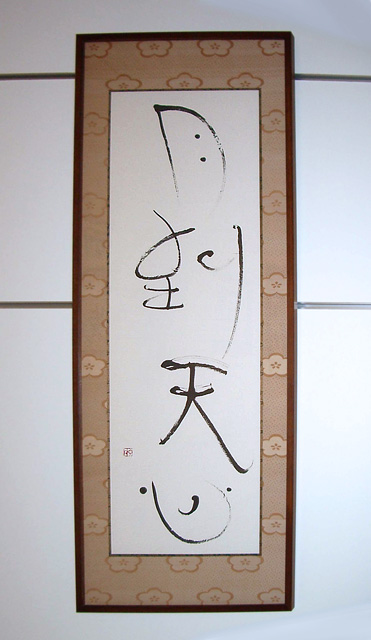 月到天心